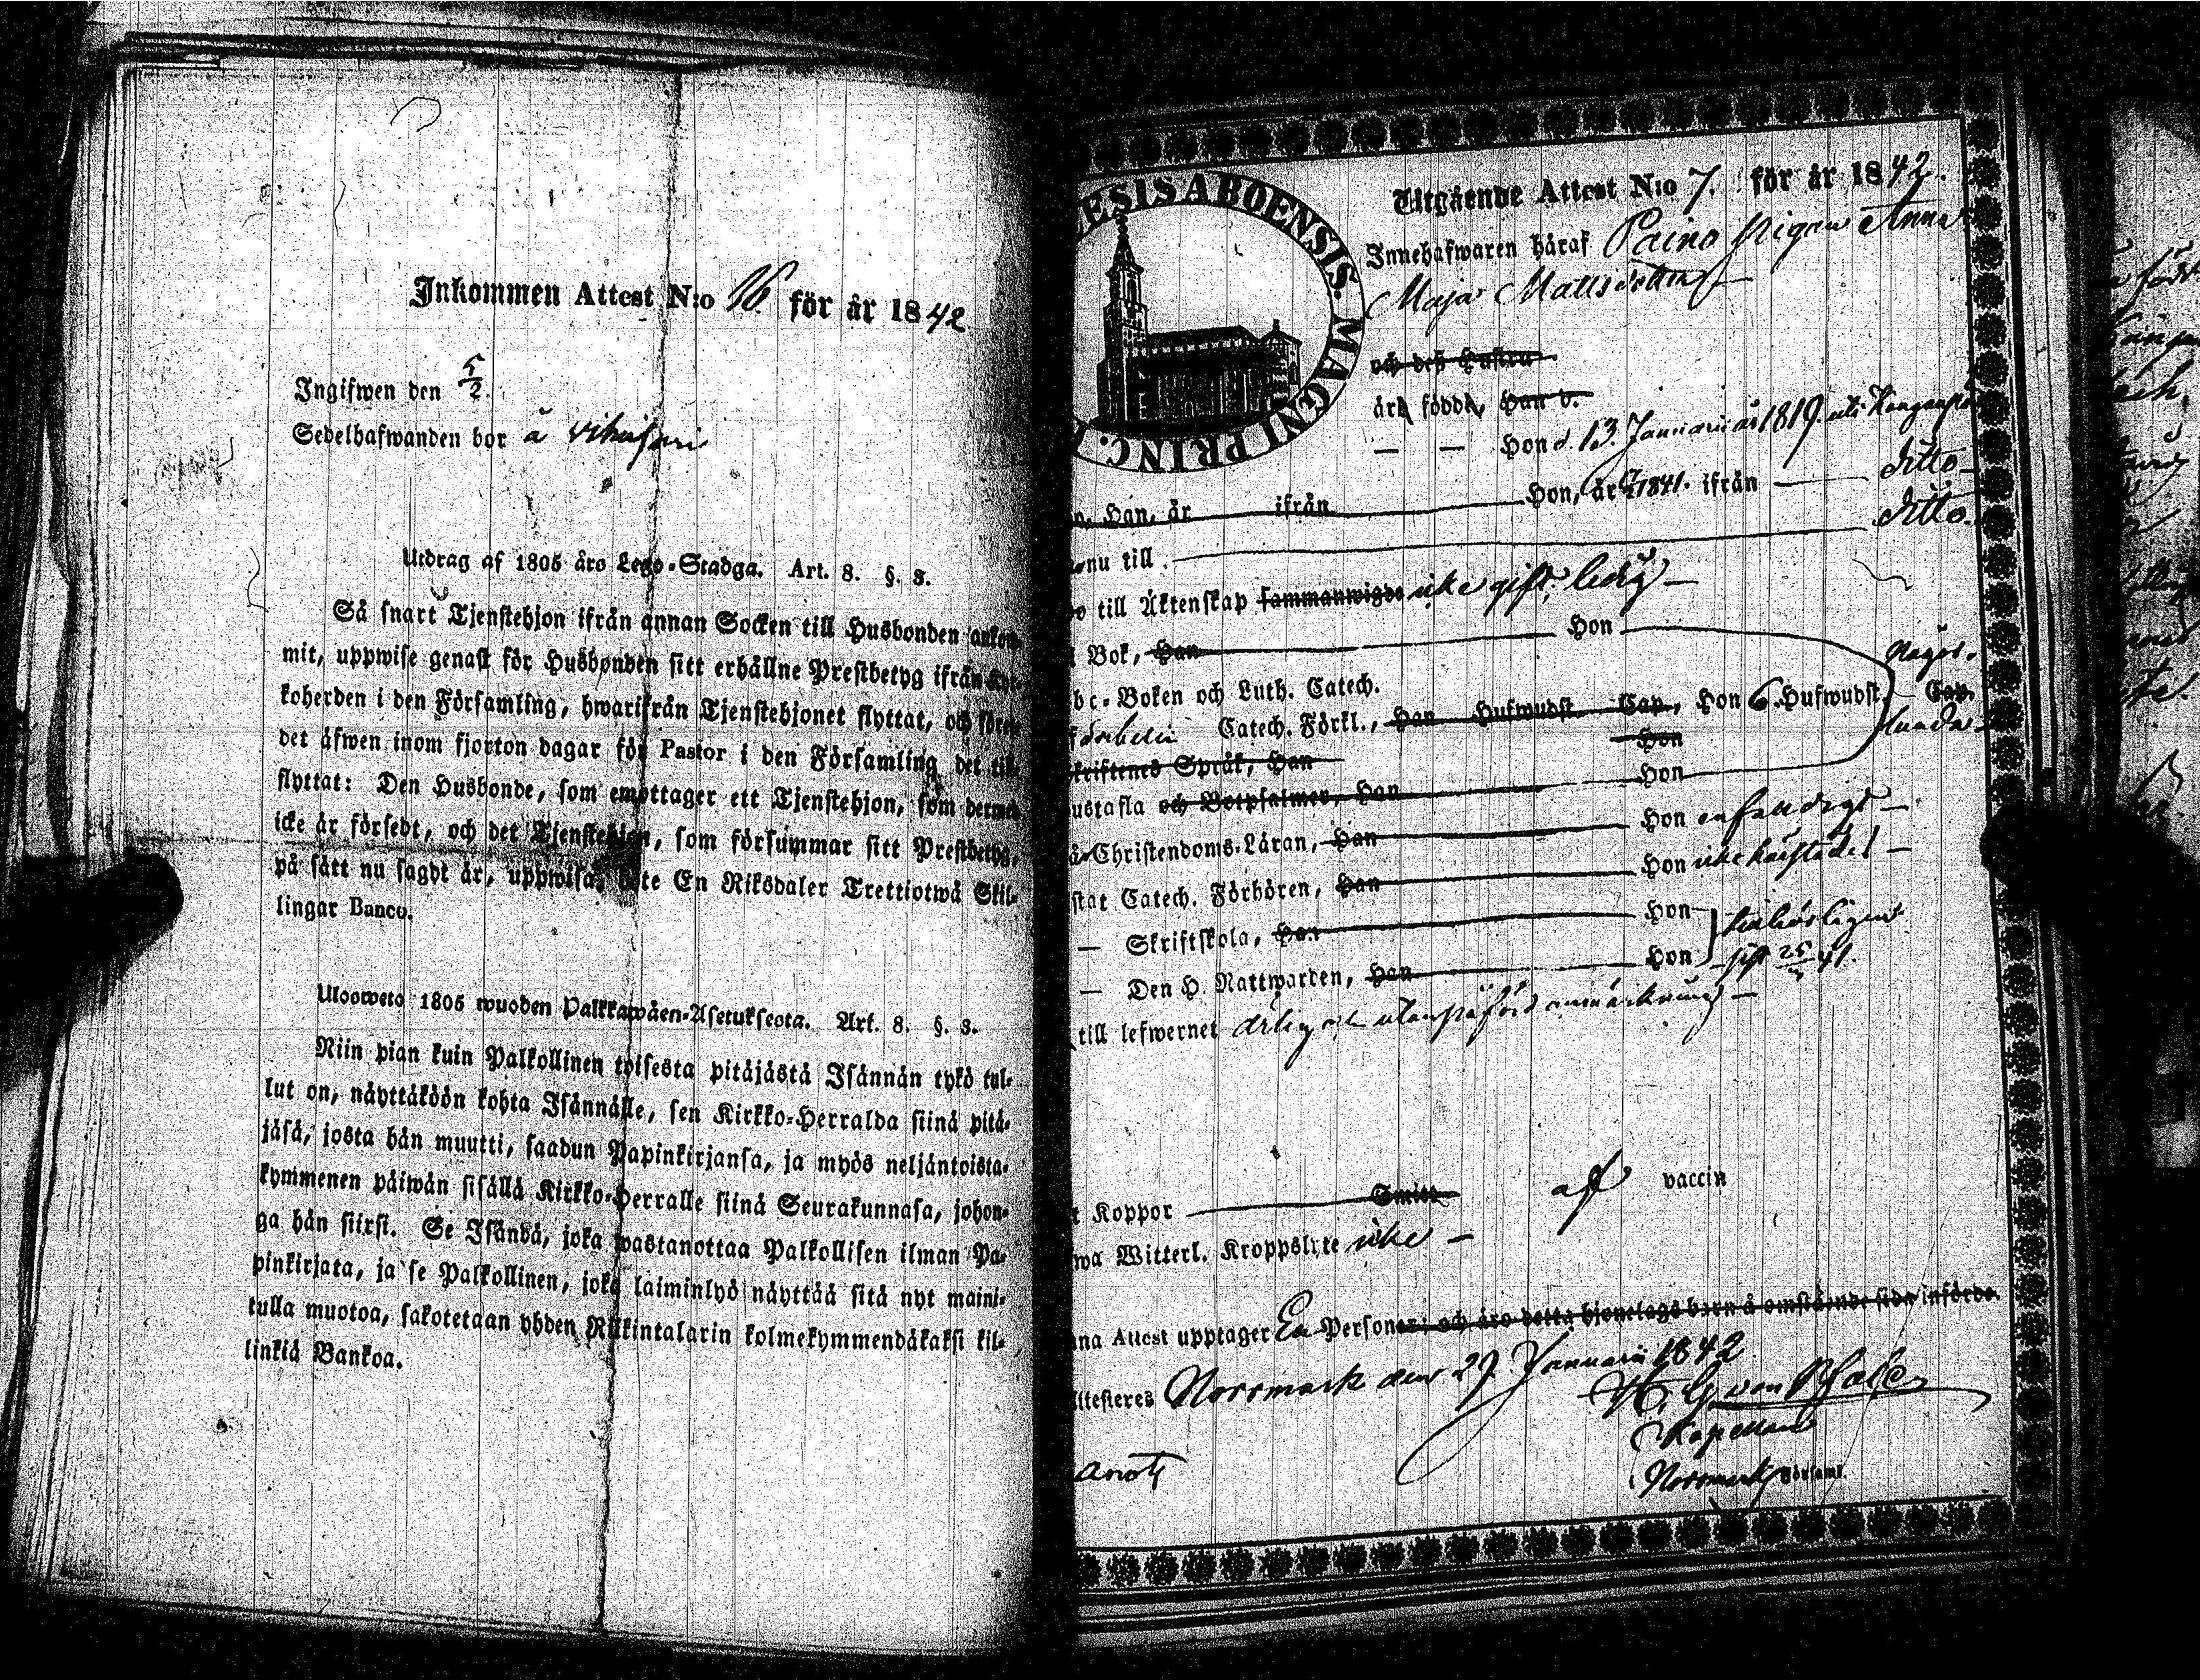 Inkommen Attest N:o 16. för år 1842
Ingifwen den 5/2.
Sedelhafwanden bor å
Utdrag af 1805 åro Lego-Stadga. Art. 8. §. 3.
Så snart Tjenstehjon ifrån annan Socken till Husbonden ankom-
mit, uppwise genast för Husbonden sitt erhållne Prestbetyg ifrån Kyr-
koherden i den Församling, hwarifrån Tjenstehjonet flyttat, och förete
det äfwen inom fjorton dagar för Pastor i den Församling det till-
flyttat: Den Husbonde, som emottager ett Tjenstehjon, som dermed
icke är försedt, och det Tjenstehjon, som försummar sitt Prestbetyg,
på sätt nu sagdt är, uppwisa, böte En Riksdaler Trettiotwå Skil-
lingar Banco.
Ulosweto 1805 wuoden Palkkawäen-Asetuksesta. Art. 8. §. 3.
Niin pian kuin Palkollinen toisesta pitäjästä Isännän tykö tul-
lut on, näyttäköön kohta Isännälle, sen Kirkko-Herralda siinä pitä-
jäsä, josta hän muutti, saadun Papinkirjansa, ja myös neljäntoista-
kymmenen päiwän sisällä Kirkko-Herralle siinä Seurakunnasa, johon-
ga hän siirsi. Se Isändä, joka wastanottaa Palkollisen ilman Pa-
pinkirjata, ja se Palkollinen, joka laiminlyö näyttää sitä nyt maini-
tulla muotoa, sakotetaan yhden Riikintalarin kolmekymmendäkaksi kil-
linkiä Bankoa.
ESIS ABOENSIS. MAGNI PRINC.
Utgående Attest N:o 7. för år 1842.
Innehafwaren häraf Paino Pigan Anna
Maja Mattsdotter
och deß Hustru
äro födde, Han d.
— — Hon d. 13. Januarii år 1819.
Han, år ifrån Hon, år 1841. ifrån — ditto
nu till ditto.
till Äktenskap sammanwigde icke gift, ledig —
Bok, Han Hon
bc-Boken och Luth. Catech. Någor-
Catech. Förkl., Han Hufwudst. Cap, Hon 6 Hufwudst. Cap. lunda
kriftenes Språk, Han Hon
ustafla och Botpsalmer, Han Hon
Christendoms-Läran, Han Hon enfaldigt —
stat Catech. Förhören, Han Hon icke härstädes —
— Skriftskola, Han Hon behörligen
— Den H. Nattwarden, Han Hon sist 25 41.
till lefwernet ärlig och utan påförd anmärkning —
Koppor Smitt af vaccin
wa Witterl. Kroppslyte icke —
na Attest upptager En Personer; och äro detta hjonelags barn å omstående sida införde.
ttesteres Norrmark den 29. Januarii 1842
Kapellan
Norrmark Församl.